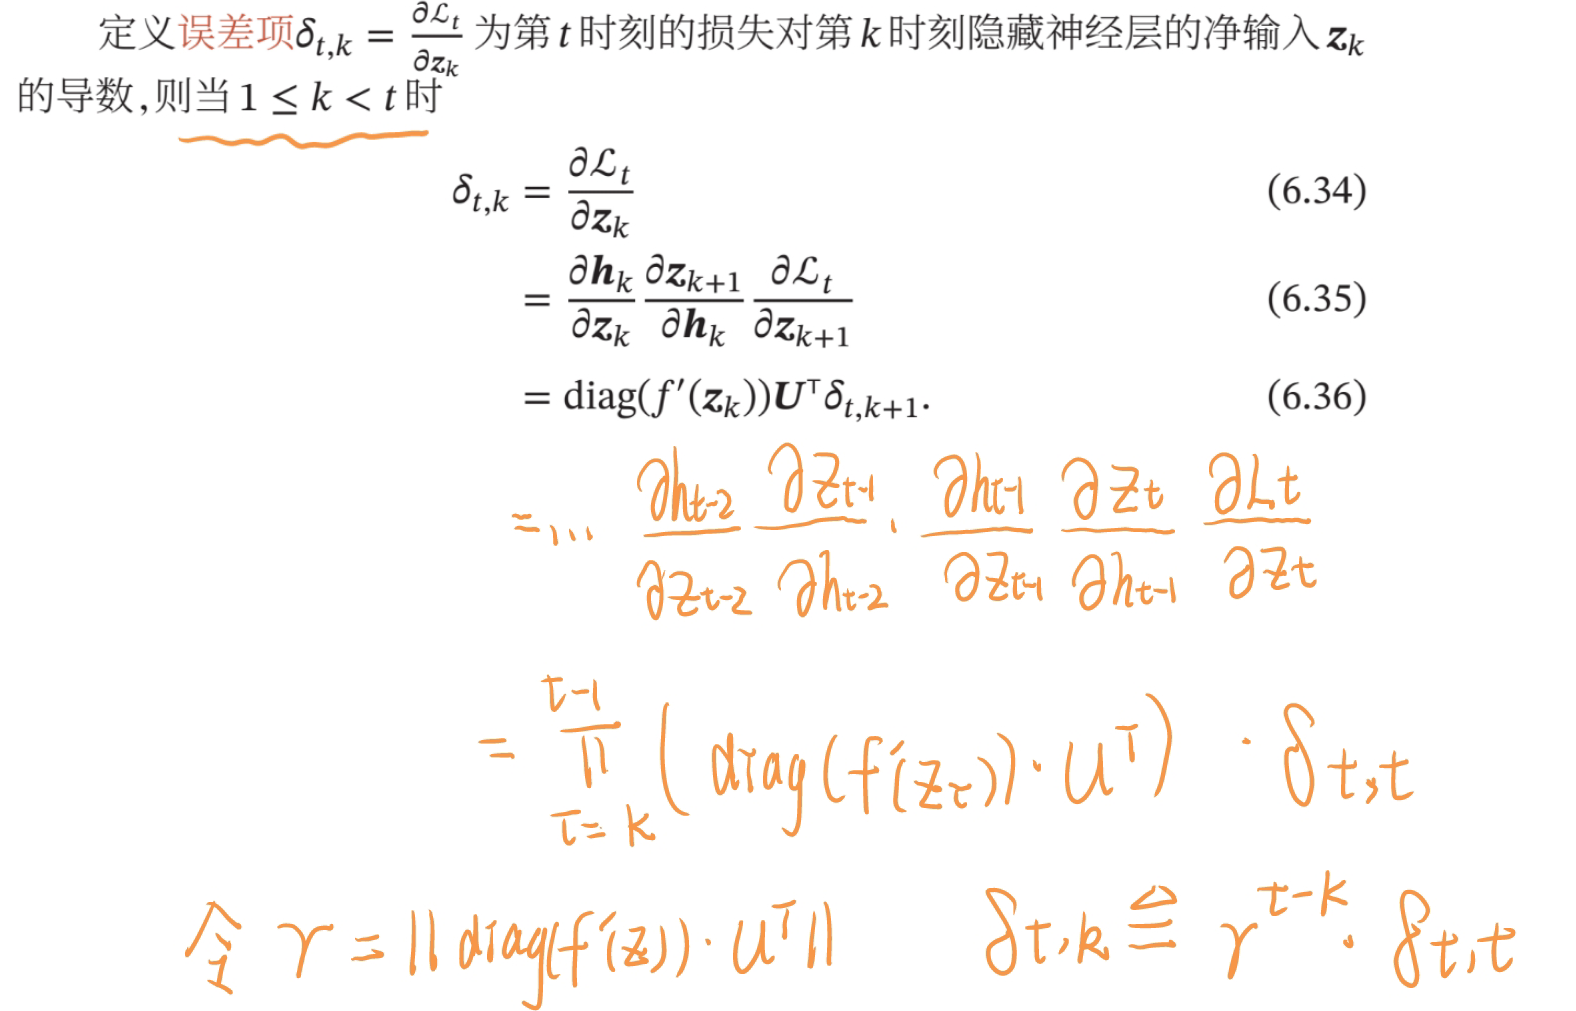 定义误差项δ_{t,k} = ∂ℒ_t/∂z_k 为第 t 时刻的损失对第 k 时刻隐藏神经层的净输入 z_k
的导数,则当 1 ≤ k < t 时
δ_{t,k} = ∂ℒ_t/∂z_k (6.34)
= ∂h_k/∂z_k ∂z_{k+1}/∂h_k ∂ℒ_t/∂z_{k+1} (6.35)
= diag(f′(z_k))U^⊤δ_{t,k+1}. (6.36)
= ... ∂h_{t-2}/∂z_{t-2} ∂z_{t-1}/∂h_{t-2} · ∂h_{t-1}/∂z_{t-1} ∂z_t/∂h_{t-1} ∂L_t/∂z_t
= ∏_{τ=k}^{t-1} (diag(f′(z_τ)) · U^T) · δ_{t,t}
令 γ = ||diag(f′(z)) · U^T|| δ_{t,k} ≜ γ^{t-k} · δ_{t,t}